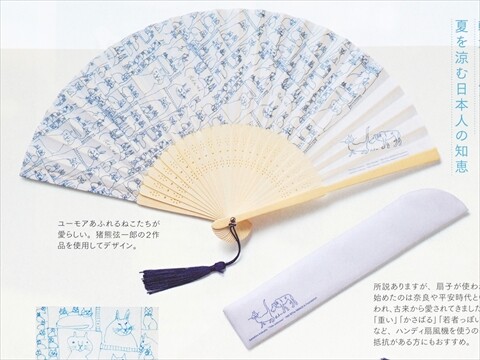 夏を涼む日本人の知恵
ユーモアあふれるねこたちが
愛らしい。猪熊弦一郎の2作
品を使用してデザイン。
所説ありますが、扇子が使わ
始めたのは奈良や平安時代と
われ、古来から愛されてきました
「重い」「かさばる」「若者っぽい
など、ハンディ扇風機を使うの
抵抗がある方にもおすすめ。